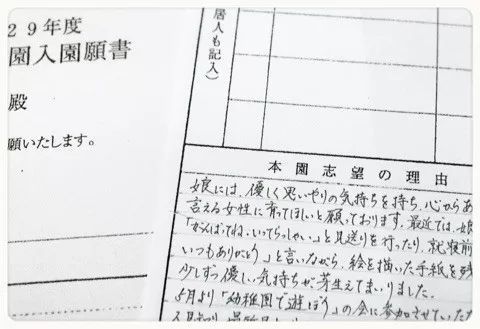 29年度
園入園願書
殿
願いたします。
居人も記入）
本園志望の理由
娘には、優しく思いやりの気持ちを持ち、心からあ
言える女性に育ってほしいと願っております。最近では、娘
「がんばってね、いってらっしゃい」と見送りを行ったり、就寝前
いつもありがとう」と言いながら、絵を描いた手紙を
少しずつ優しい気持ちが芽生えてまいりました。
5月より「幼稚園で遊ぼう」の会に参加させていただ